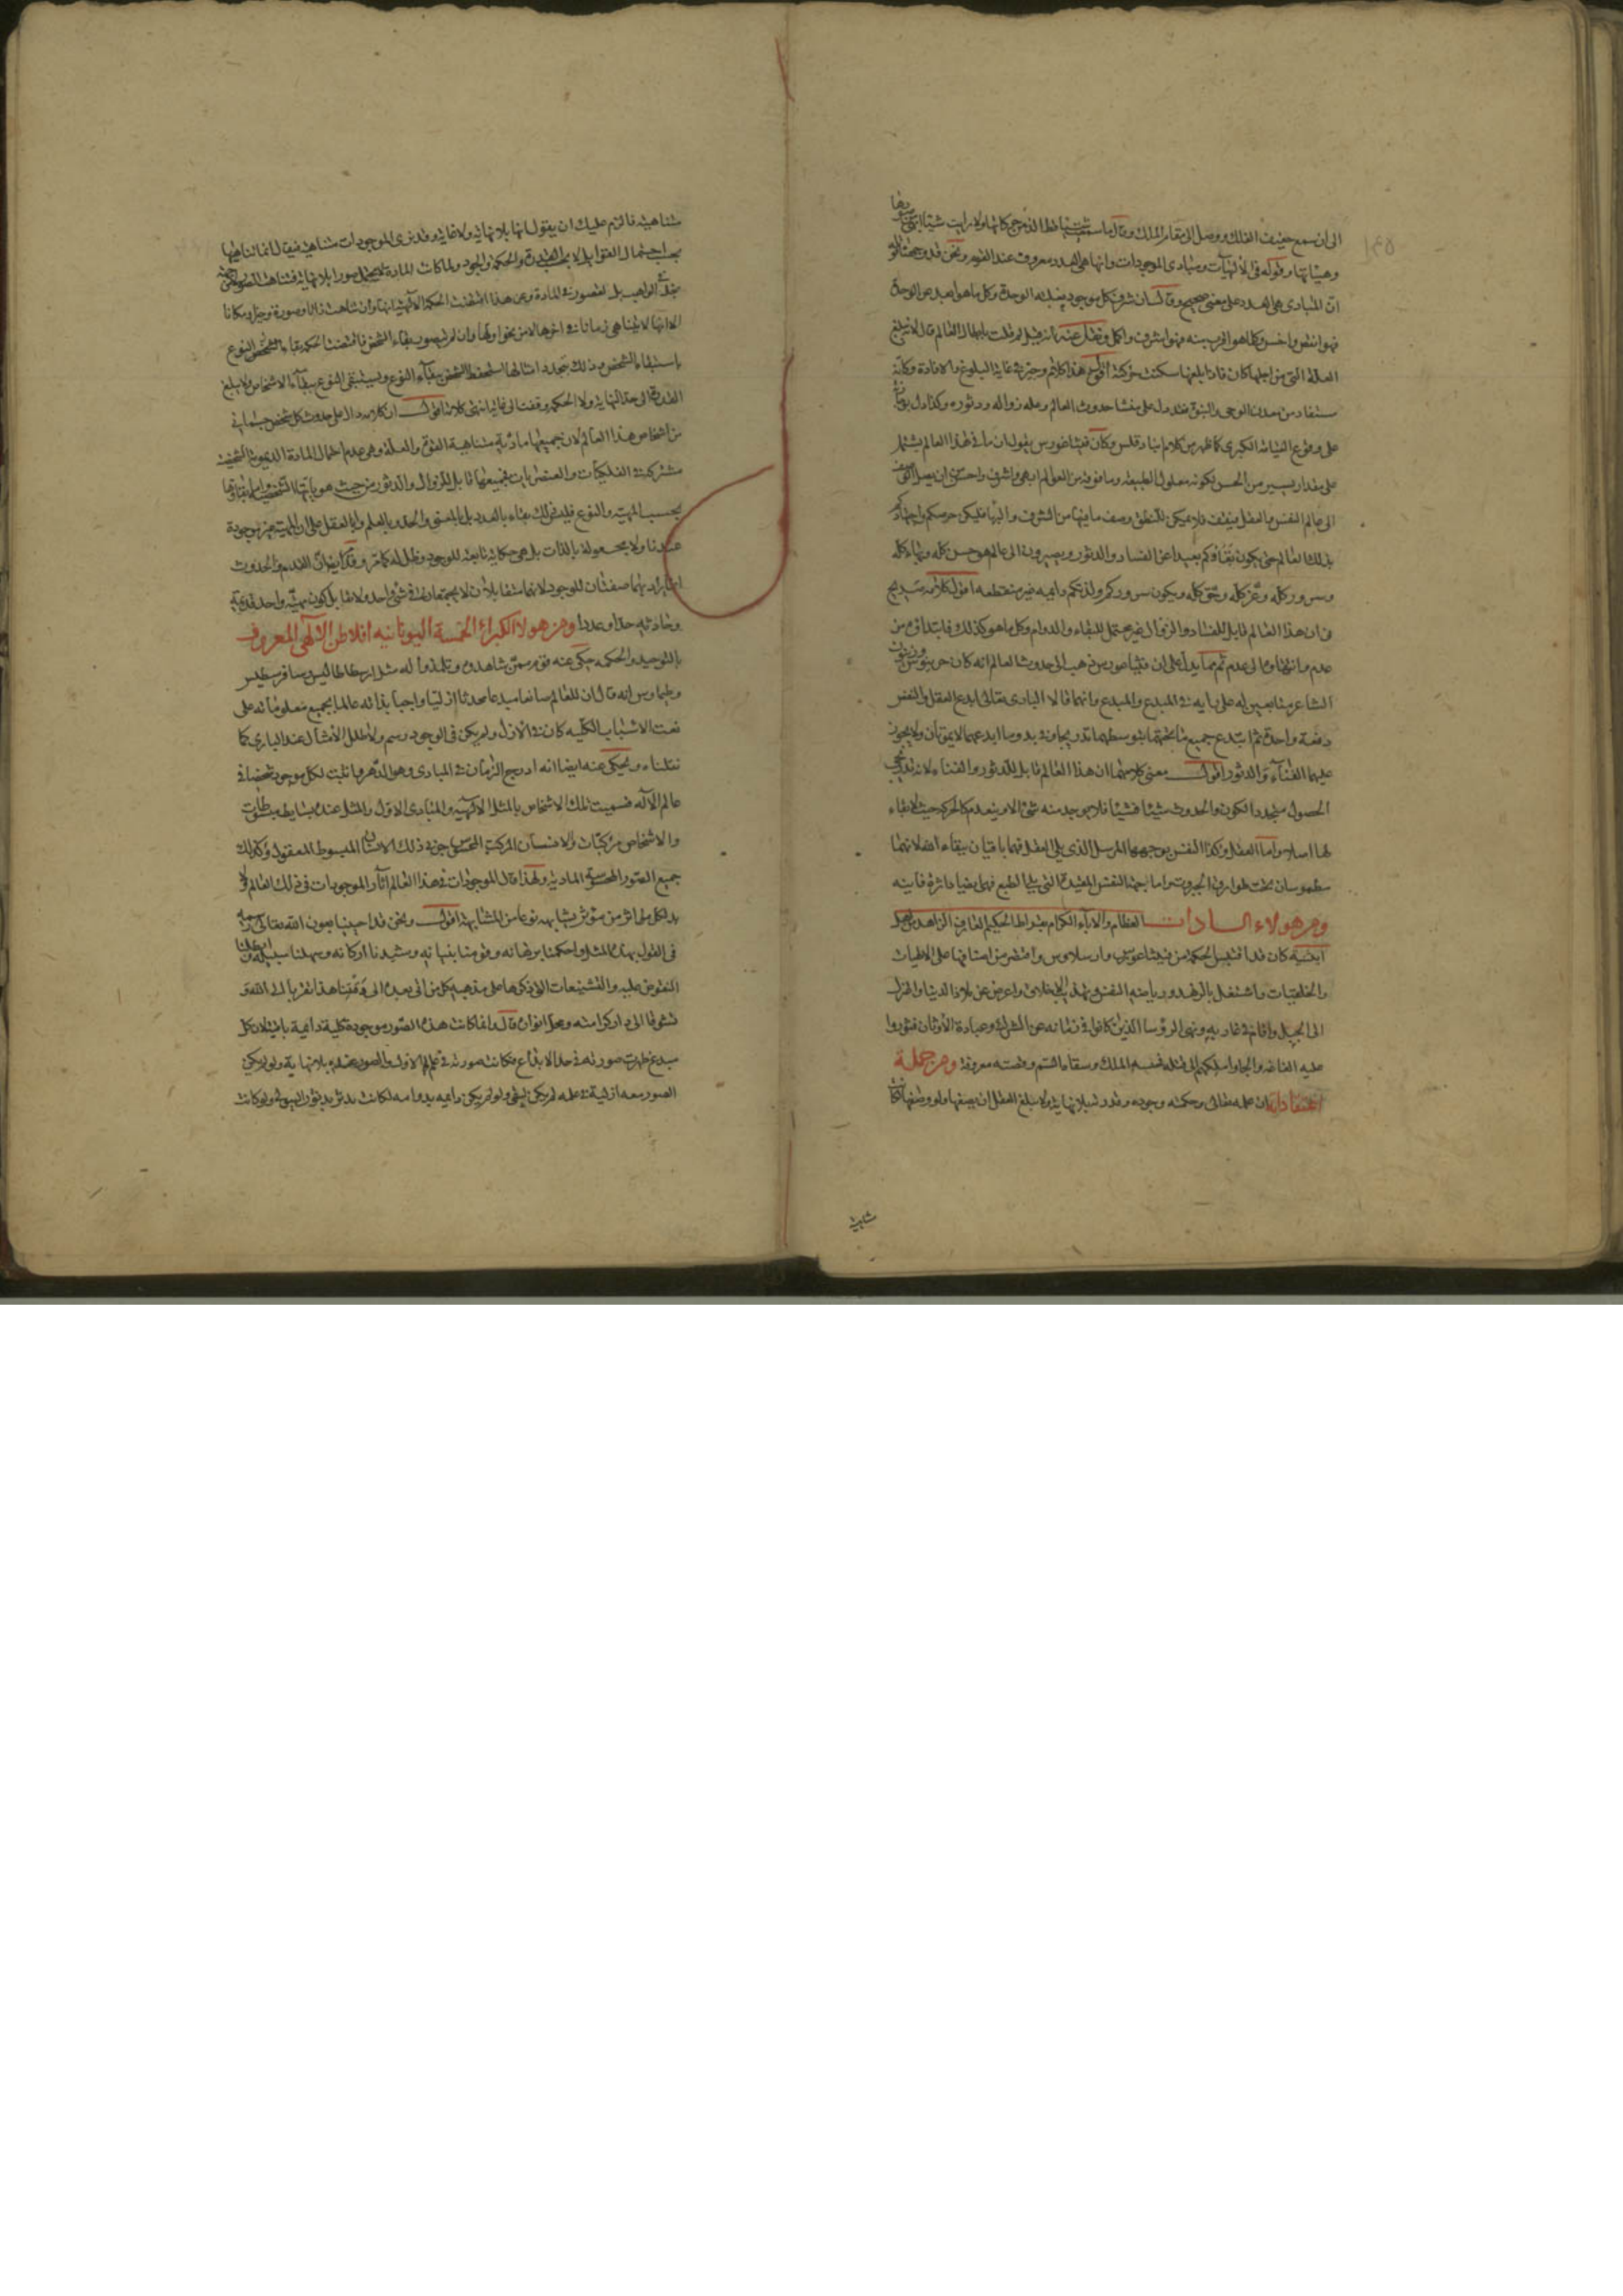 الى ان سمع حفيف الفلك ووصل الى مقام الملك وقال ما سمعت شيئا قط الذ من حركاتها ولا رايت شيئا ابهى من صورها
وهيئاتها وقوله فى الالهيات ومبادى الموجودات وانها هى العدد معروف عند القوم ونحن قد وجهنا قوله
ان المبادى هى العدد على معنى صحيح وقال ان شرف كل موجود بغلبة الوحدة وكل ما هو ابعد عن الوحدة
فهو انقص واخس وكلما هو اقرب منه فهو اشرف واكمل ونقل عنه انه قيل له لم قلت بابطال العالم قال لانه يبلغ
العلة التى من اجلها كان فاذا بلغها سكنت حركته اقول هذا كلام وجيز فى غاية البلوغ والافادة وكانه
مستفاد من معدن الوحى والنبوة فقد دل على منشا حدوث العالم وعلة زواله ودثوره وكذا دل
على وقوع القيامة الكبرى كما ظهر من كلام انباذقلس وكان فيثاغورس يقول ان ما فى هذا العالم يشتمل
على مقدار يسير من الحسن لكونه معلول الطبيعة وما فوقه من العوالم ابهى واشرف واحسن الى ان يصل الوصف
الى عالم النفس والعقل فيقف فلا يمكن للمنطق وصف ما فيها من الشرف والبهاء فليكن حرصكم واجتهادكم
بذلك العالم حتى يكون بقاؤكم بعيدا عن الفساد والدثور ويصيرون الى عالم هو حسن كله وبهاء كله
وسرور كله وعز كله وحق كله ويكون سروركم ولذتكم دائمة غير منقطعة اقول كلامه صريح
فى ان هذا العالم قابل للفساد والزوال غير محتمل للبقاء والدوام وكل ما هو كذلك فابتداؤه من
عدم وانتهاؤه الى عدم ثم مما يدل على ان فيثاغورس ذهب الى حدوث العالم انه كان خرينوس وزينون
الشاعر متابعين له على رايه فى المبدع والمبدع وانهما قالا البارى تعالى ابدع العقل والنفس
دفعة واحدة ثم ابدع جميع ما تحتهما بتوسطهما تدريجا وفى بدو ما ابدعهما لا يموتان ولا يجوز
عليهما الفناء والدثور اقول معنى كلامهما ان هذا العالم قابل للدثور والفناء لانه تدريجى
الحصول متجدد الكون والحدوث شيئا فشيئا فلا يوجد منه شئ الا وينعدم كالحركة حيث لا بقاء
لها اصلا واما العقل وكذا النفس بوجهها المرسل الذى يلى العقل فهما باقيان ببقاء الله لانهما
مطموسان تحت طوارق الجبروت واما جهة النفس المقيدة التى يلى الطبع فهى ايضا داثرة فانية
ومن هولاء السادات العظام والاباء الكرام سقراط الحكيم العارف الزاهد من اهل
اثينية كان قد اقتبس الحكمة من فيثاغورس وارسلاوس واقتصر من اصنافها على الالهيات
والخلقيات واشتغل بالزهد ورياضة النفس وتهذيب الاخلاق واعرض عن ملاذ الدنيا واعتزل
الى الجبل واقام فى غار به ونهى الرؤسا الذين كانوا فى زمانه عن الشرك وعبادة الاوثان فثوروا
عليه الغاغة والجاوا ملكهم الى قتله فحبسه الملك وسقاه السم وقصته معروفة ومن جملة
اعتقاداته ان علمه تعالى وحكمته وجوده وقدرته بلا نهاية ولا يبلغ العقل ان يصفها ولو وصفها لكانت
متناهية
متناهية فالزم عليك ان يقول انها بلا نهاية ولا غاية وقد نرى الموجودات متناهية فيقال انما تناهيها
بحسب احتمال القوابل لا بحسب القدرة والحكمة والجود ولما كانت المادة لم يحتمل صورا بلا نهاية فتناهت الصور لا من جهة
بخل فى الواهب بل لقصور فى المادة وعن هذا اقتضت الحكمة الالهية انها وان تناهت ذاتا وصورة وحيزا ومكانا
الا انها لا يتناهى زمانا فى اخرها الا من نحو اولها وان لم يتصور بقاء الشخص فاقتضت الحكمة بقاء الشخص النوع
باستبقاء الشخص وذلك بتجدد امثالها ليستحفظ الشخص ببقاء النوع ويستبقى النوع ببقاء الاشخاص ولا يبلغ
القدرة الى حد النهاية ولا الحكمة وقفت الى غاية انتهى كلامه اقول ان كلامه دال على حدوث كل شخص جسمانى
من اشخاص هذا العالم لان جميعها مادية متناهية القوة والعلة وهى عدم احتمال المادة الديمومة الشخصية
مشتركة فى الفلكيات والعنصريات فجميعها قابل للزوال والدثور من حيث هوياتها الشخصية واما بقاؤها
بحسب المهية والنوع فليس ذلك بقاء بالعدد بل بالمعنى والحد والعلم والعقل على ان المهية غير موجودة
عندنا ولا مجعولة بالذات بل هى حكاية تابعة للوجود وظل له كما مر وقلنا ايضا ان القدم والحدوث
المراد بهما صفتان للوجود لانهما متقابلان لا يجتمعان فى شئ واحد ولا تقابل لكون مهية واحدة قديمة
وحادثة حدا وعددا ومن هولاء الكبراء الخمسة اليونانية افلاطن الالهى المعروف
بالتوحيد والحكمة حكى عنه قوم ممن شاهدوه وتلمذوا له مثل ارسطاطاليس وثاوفرسطيس
وطيماوس انه قال ان للعالم صانعا مبدعا محدثا ازليا واجبا بذاته عالما بجميع معلوماته على
نعت الاسباب الكلية كان فى الازل ولم يكن فى الوجود رسم ولا طلل الا مثال عند البارى كما
نقلناه ويحكى عنه ايضا انه ادرج الزمان فى المبادى وهو الدهر واثبت لكل موجود شخصا فى
عالم الاله فسميت تلك الاشخاص بالمثل الالهية والمبادى الاول والمثل عنده بسايط مبسوطات
والاشخاص مركبات والانسان المركب المحسوس جزئى ذلك الانسان المبسوط المعقول وكذلك
جميع الصور المحسوسة المادية ولهذا قال الموجودات فى هذا العالم اثار الموجودات فى ذلك العالم ولا
بد لكل اثر من مؤثر يشابهه نوعا من المشابهة اقول ونحن قد احيينا بعون الله تعالى رسمه
فى القول بهذه المثل واحكمنا برهانه وقومنا بنيانه وشيدنا اركانه وسهلنا سبيله وابطلنا
النقوض عليه والتشنيعات التى ذكرها على مذهبه كل من اتى بعده الى وقتنا هذا تقربا الى الله و
تشوقا الى دار كرامته ومحل انواره قال وانما كانت هذه الصور موجودة كلية دائمة باقية لان كل
مبدع ظهرت صورته فى حد الابداع فكانت صورته فى علم الاول والصور عنده بلا نهاية ولو لم يكن
الصور معه ازلية فى علمه لم يكن لتبقى ولو لم يكن دائمة بدوامه لكانت تدثر بدثور الهيولى ولو كانت